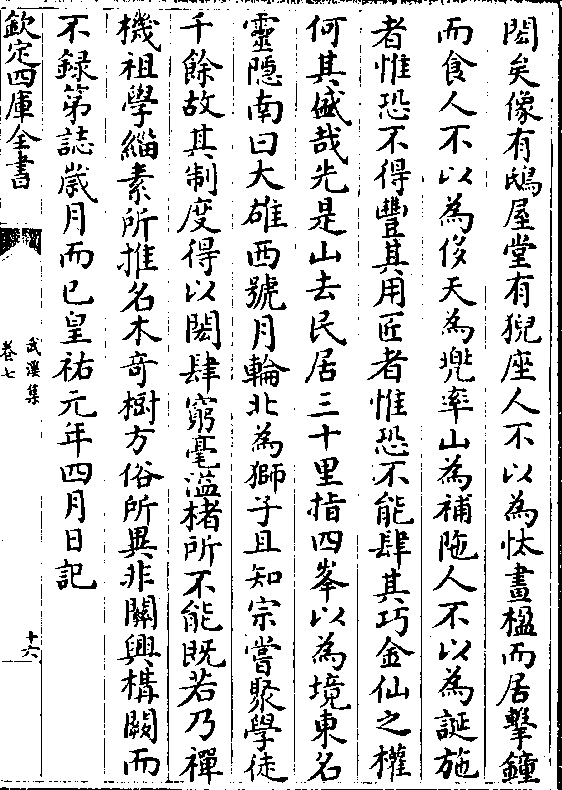 閎矣像有鴟屋堂有猊座人不以為忲畫楹而居擊鐘
而食人不以為侈天為兜率山為補陁人不以為誕施
者惟恐不得豐其用匠者惟恐不能肆其巧金仙之權
何其盛哉先是山去民居三十里指四峯以為境東名
靈隠南曰大雄西號月輪北為獅子且知宗嘗聚學徒
千餘故其制度得以閎肆窮毫溢楮所不能既若乃禪
機祖學緇素所推名木奇樹方俗所異非關興構闕而
不録第誌嵗月而已皇祐元年四月日記
欽定四庫全書
武溪集
卷七
十六